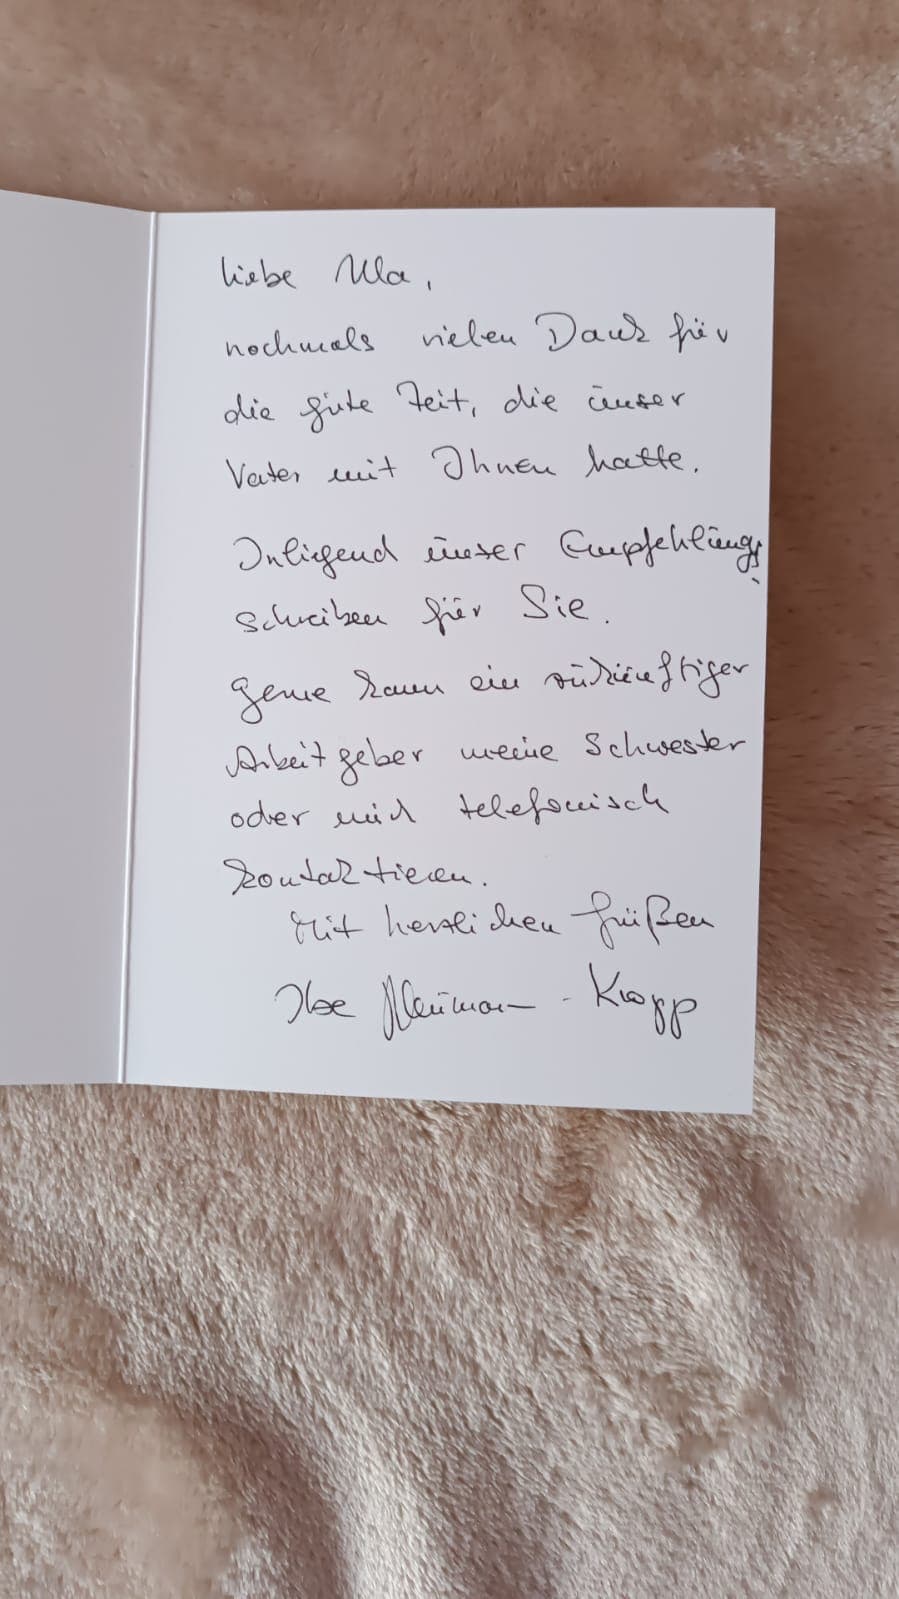 liebe Ulla,
nochmals vielen Dank für
die gute Zeit, die unser
Vater mit Ihnen hatte.
Inliegend unser Empfehlungs-
schreiben für Sie.
Gerne kann ein zukünftiger
Arbeitgeber meine Schwester
oder mich telefonisch
kontaktieren.
Mit herzlichen Grüßen
Ilse Neumann - Kropp